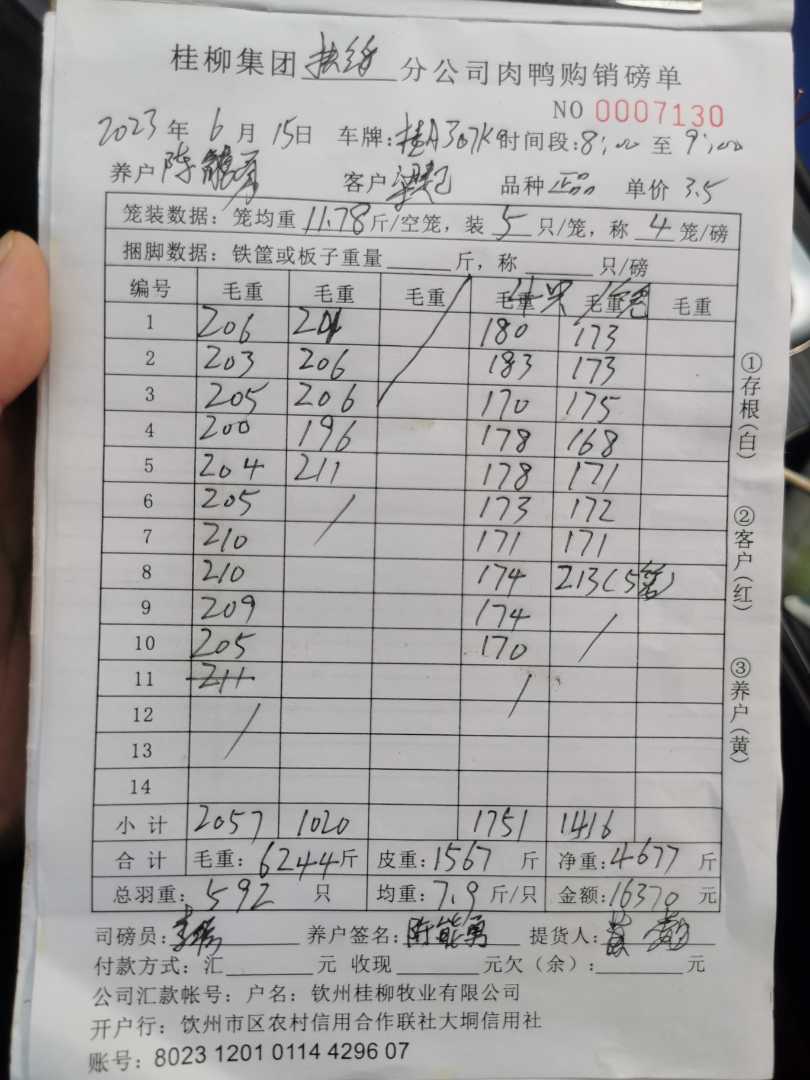 桂柳集团扶绥分公司肉鸭购销磅单
NO 0007130
2023年6月15日 车牌:桂A307K9时间段:8:00至9:00
养户陈能勇 客户梁起 品种正品 单价3.5
笼装数据:笼均重11.78斤/空笼,装5只/笼,称4笼/磅
捆脚数据:铁筐或板子重量 斤,称 只/磅
编号 毛重 毛重 毛重 毛重 毛重 毛重
4只/笼
1 206 201 180 173
2 203 206 183 173
3 205 206 170 175
4 200 196 178 168
5 204 211 178 171
6 205 173 172
7 210 171 171
8 210 174 213(5笼)
9 209 174
10 205 170
11 211
12
13
14
小计 2057 1020 1751 1416
合计 毛重:6244斤 皮重:1567斤 净重:4677斤
总羽重:592只 均重:7.9斤/只 金额:16370元
司磅员: 养户签名:陈能勇 提货人:
付款方式:汇 元 收现 元欠(余): 元
公司汇款帐号:户名:钦州桂柳牧业有限公司
开户行:钦州市区农村信用合作联社大垌信用社
账号:8023 1201 0114 4296 07
①存根(白)
②客户(红)
③养户(黄)